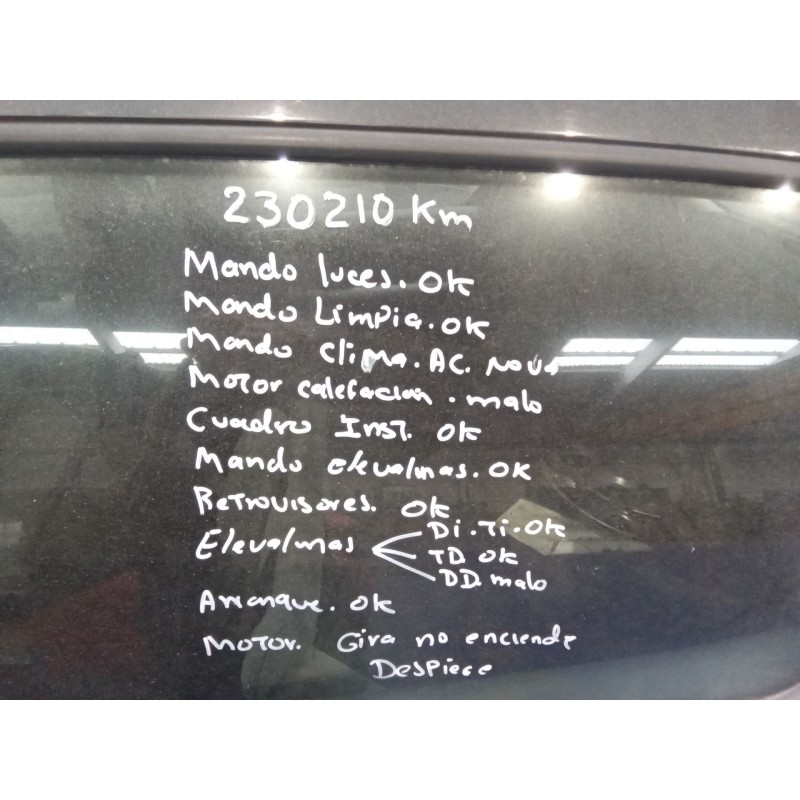 230210 Km
Mando luces. OK
Mando Limpia. OK
Mando clima. AC. NO VA
Motor calefacion. malo
Cuadro Inst. OK
Mando elevalunas. OK
Retrovisores. OK
Elevalunas
DI. TI. OK
TD OK
DD. malo
Arranque. OK
MOTOR. Gira no enciende
Despiece